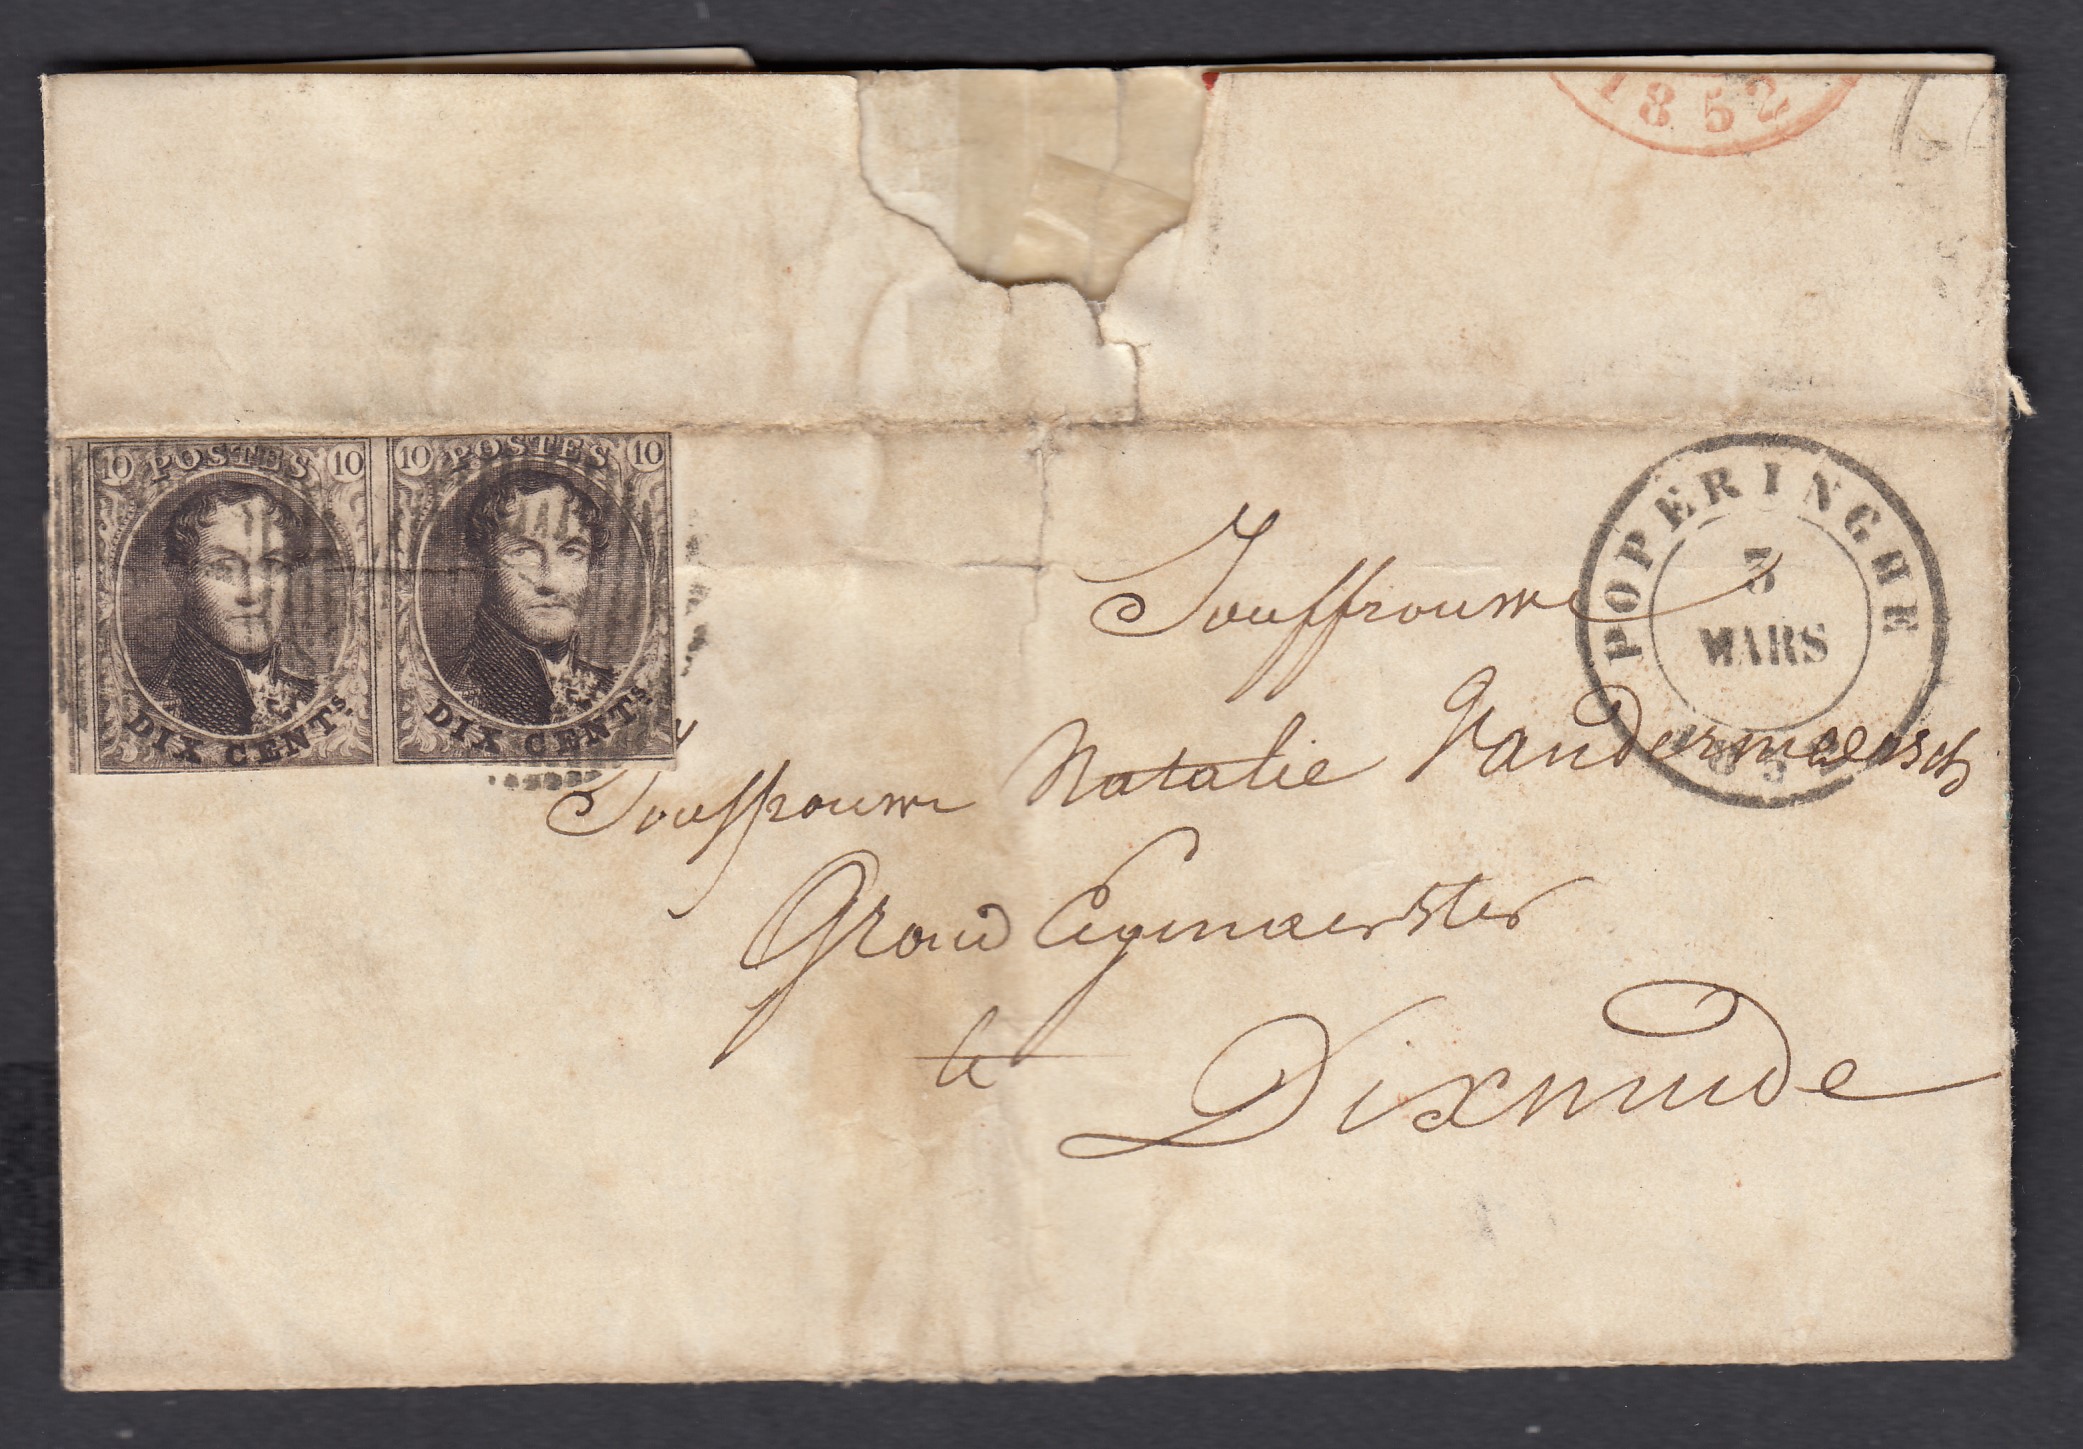 1852
10 POSTES 10
DIX CENTS.
10 POSTES 10
DIX CENTS.
POPERINGHE
3
MARS
1852
Jouffrouw
Jouffrouw Natalie Vandermeersch
Grand
te
Dixmude